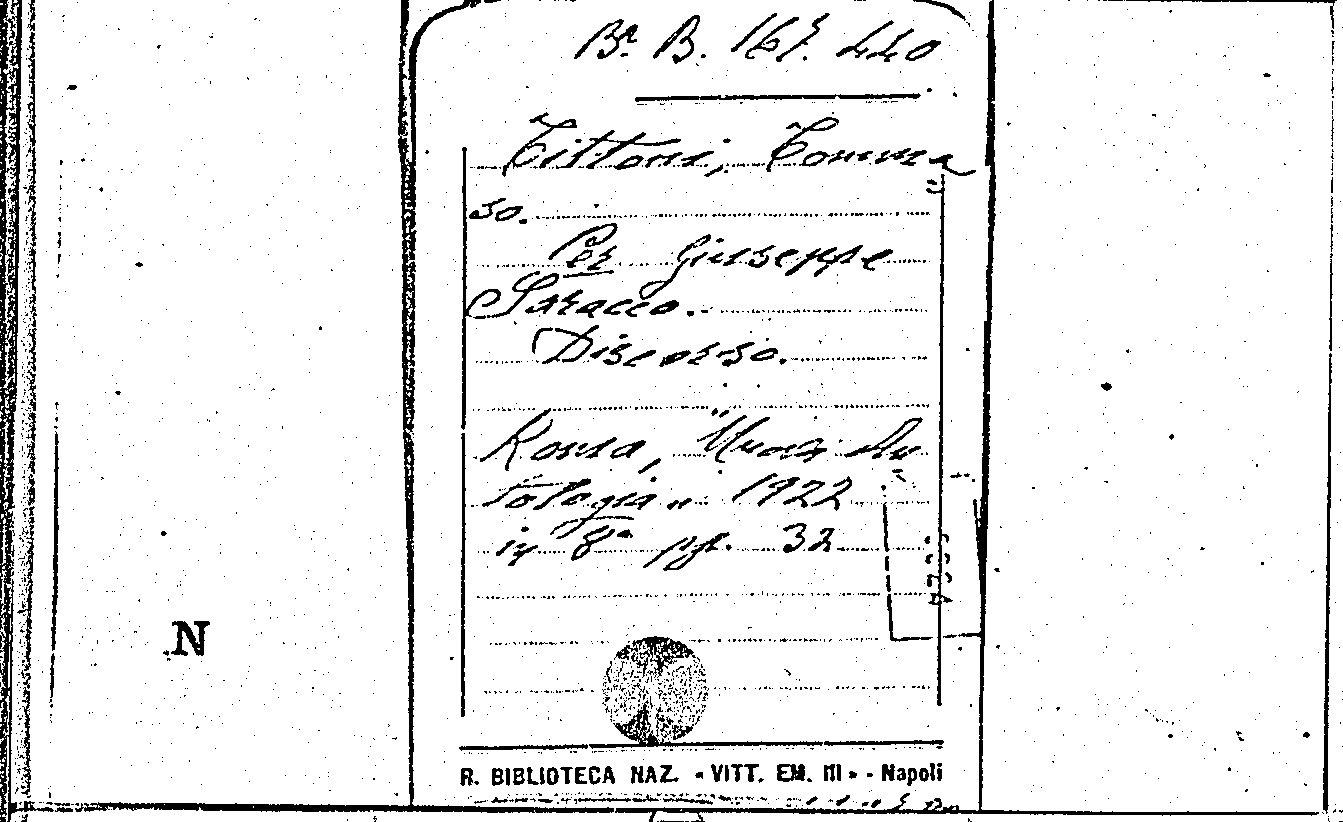 Bª B. 167. 440
Tittoni, Tomma
so.
Per Giuseppe
Saracco.
Discorso.
Roma, "Nuova An
tologia" 1922
in 8° pp. 32
N
R. BIBLIOTECA NAZ. « VITT. EM. III » - Napoli